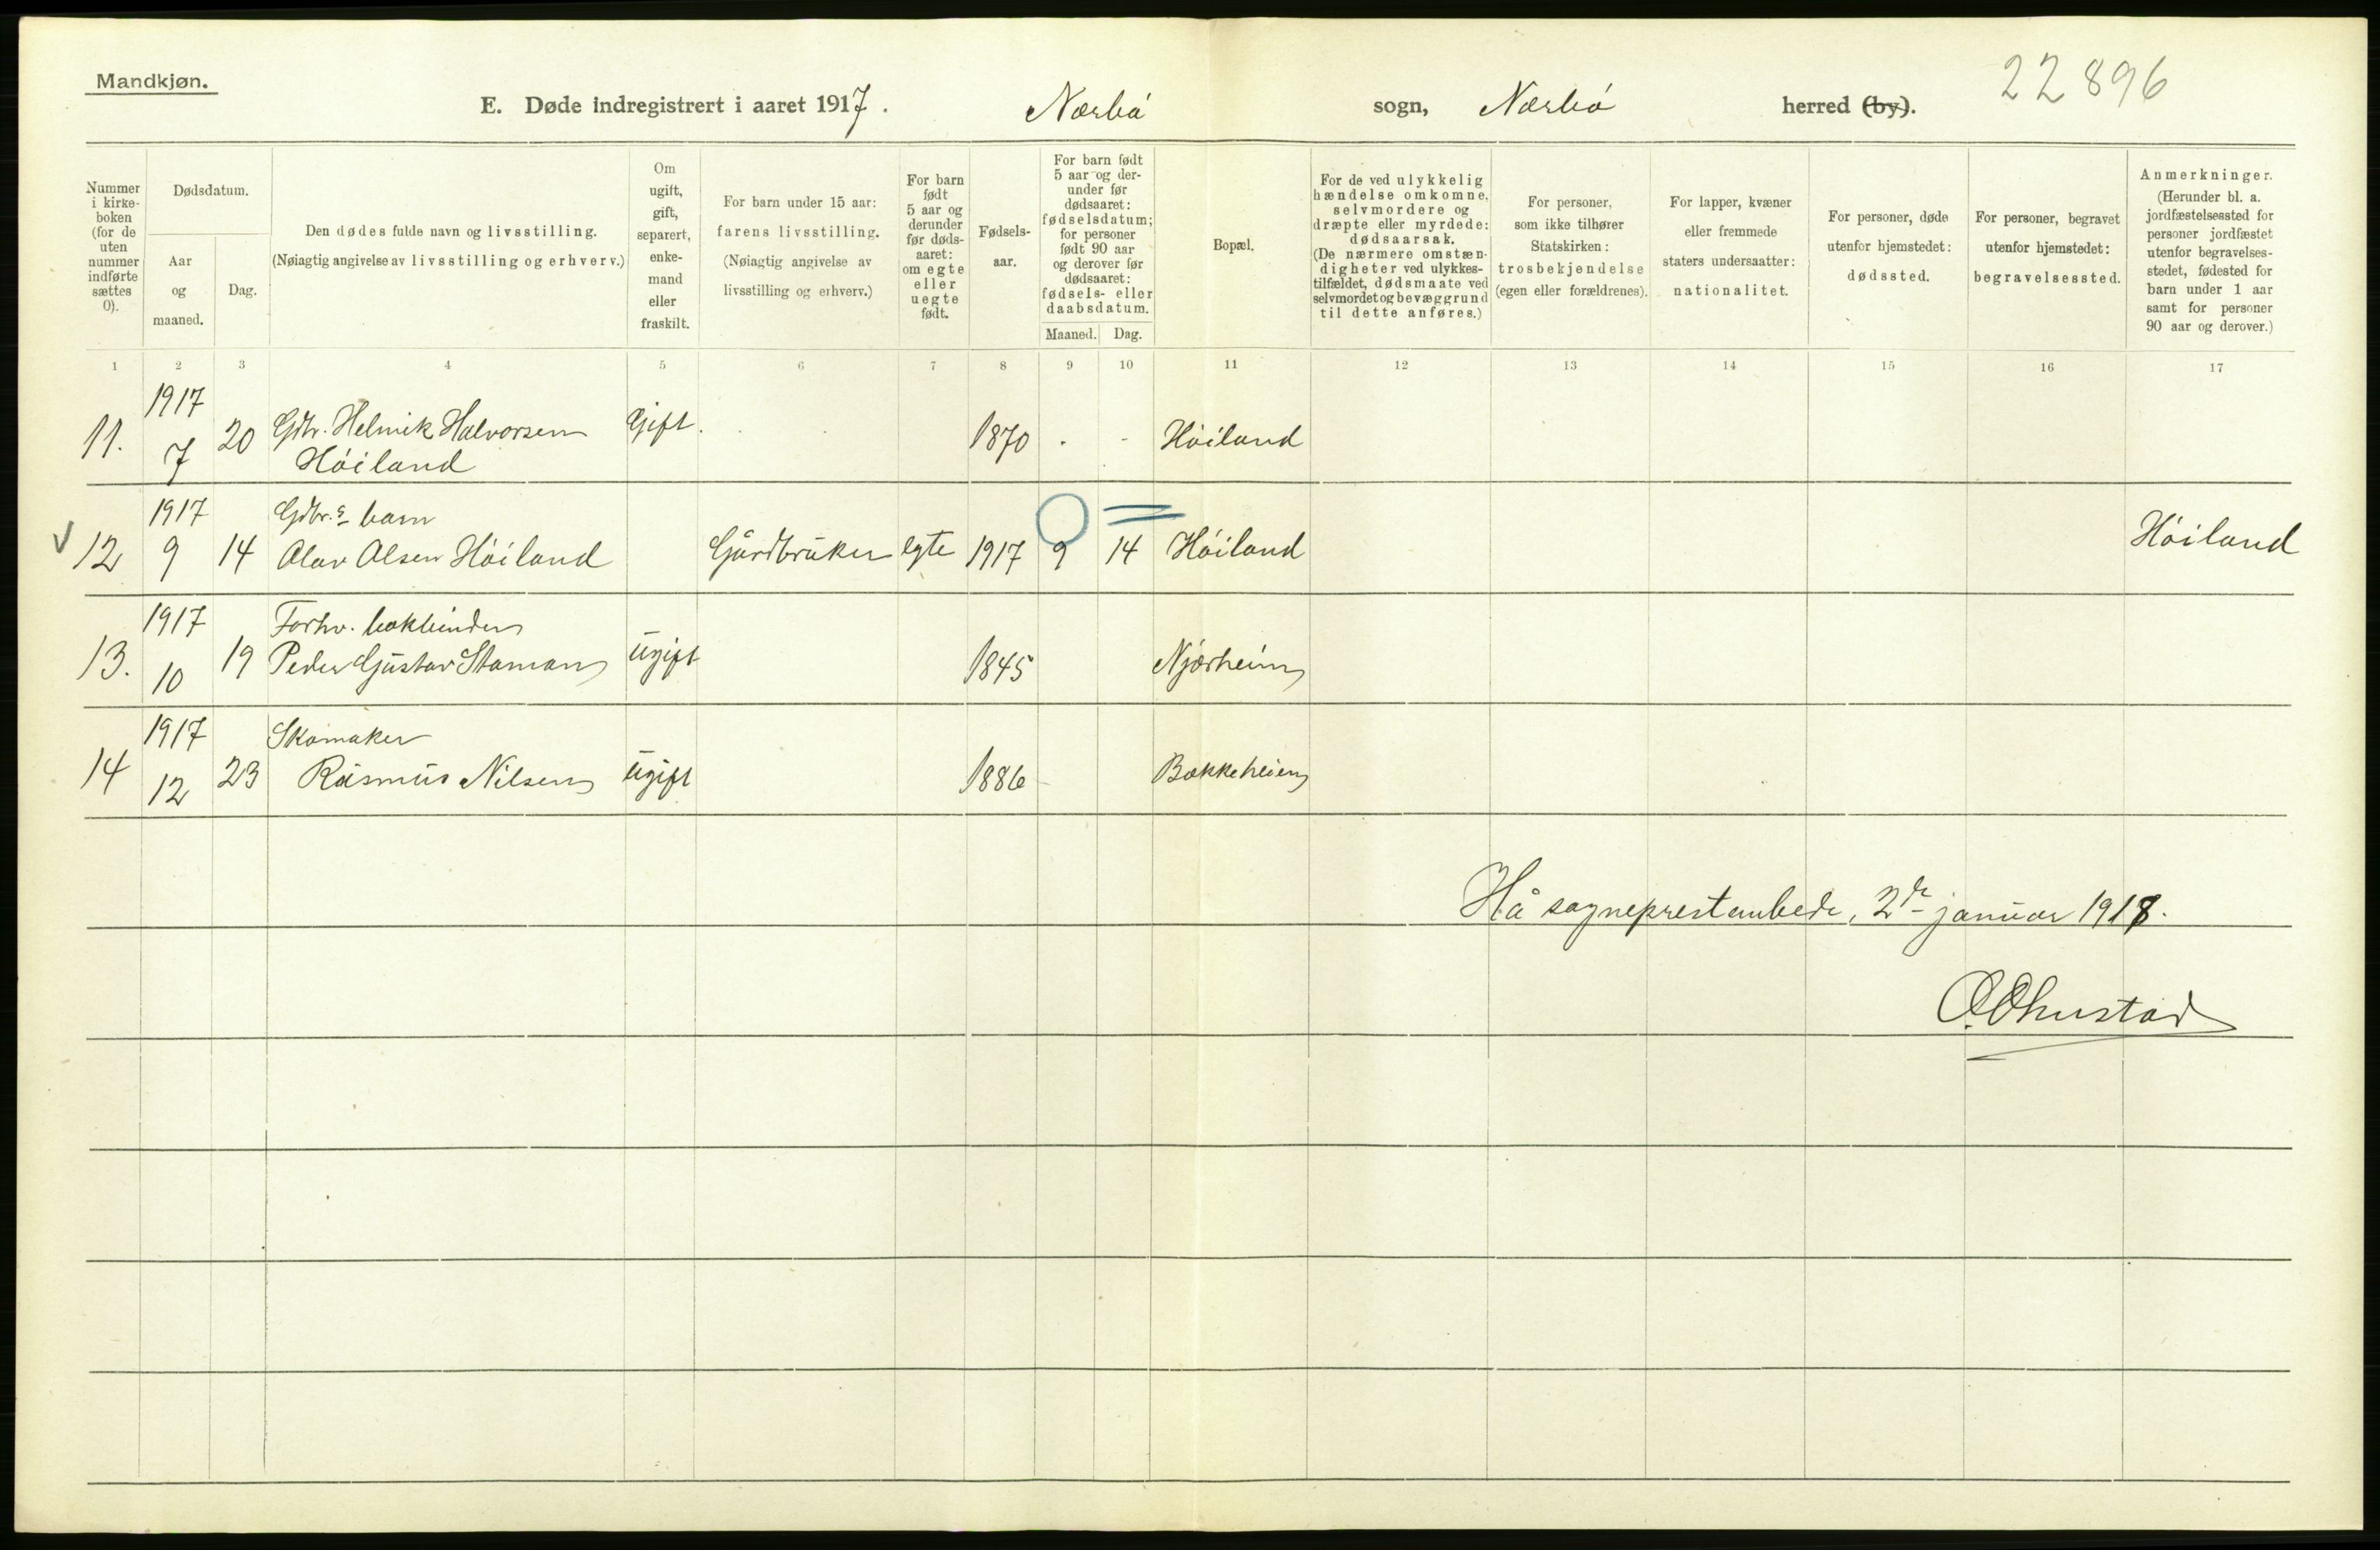 Mandkjøn.
22896
E. Døde indregistrert i aaret 1917. Nærbø sogn, Nærbø herred (by).
Nummer i kirke-boken (for de uten nummer indførte sættes 0).
Dødsdatum.
Aar og maaned.
Dag.
Den dødes fulde navn og livsstilling.
(Nøiagtig angivelse av livsstilling og erhverv.)
Om ugift, gift, separert, enke-mand eller fraskilt.
For barn under 15 aar:
farens livsstilling.
(Nøiagtig angivelse av
livsstilling og erhverv.)
For barn født 5 aar og derunder før døds-aaret: om egte eller uegte født.
Fødsels-aar.
For barn født
5 aar og der-
under før
dødsaaret:
fødselsdatum;
for personer
født 90 aar
og derover før
dødsaaret:
fødsels- eller
daabsdatum.
Maaned. Dag.
Bopæl.
For de ved ulykkelig
hændelse omkomne,
selvmordere og
dræpte eller myrdede:
dødsaarsak.
(De nærmere omstæn-
digheter ved ulykkes-
tilfældet, dødsmaate ved
selvmordet og bevæggrund
til dette anføres.)
For personer,
som ikke tilhører
Statskirken:
trosbekjendelse
(egen eller forældrenes).
For lapper, kvæner
eller fremmede
staters undersaatter:
nationalitet.
For personer, døde
utenfor hjemstedet:
dødssted.
For personer, begravet
utenfor hjemstedet:
begravelsessted.
Anmerkninger.
(Herunder bl. a.
jordfæstelsessted for
personer jordfæstet
utenfor begravelses-
stedet, fødested for
barn under 1 aar
samt for personer
90 aar og derover.)
1 2 3 4 5 6 7 8 9 10 11 12 13 14 15 16 17
1917
11. 7 20 Gdbr. Helmik Halvorsen Gift. 1870 . - Höiland
Höiland
1917 Gdbr.s barn
12 9 14 Olav Olsen Höiland Gårdbruker egte 1917 9 14 Höiland Höiland
1917 Forhv. bokbinder
13. 10 19 Peder Gustav Staman ugift 1845 Njærheim
1917 Skomaker
14 12 23 Rasmus Nilsen ugift 1886 - Bækkeheien
Hå sogneprestembede, 2de januar 1918.